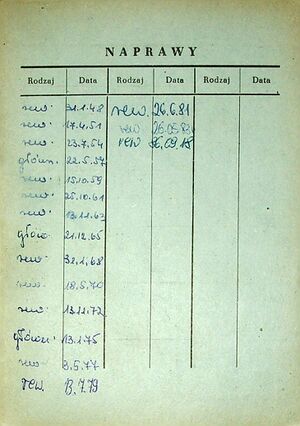 NAPRAWY
Rodzaj Data Rodzaj Data Rodzaj Data
rew. 31.1.48 rew. 26.6.81
rew. 17.4.51 rew 26.05.83
rew. 23.7.54 rew 26.09.85
główn. 22.5.57
rew. 15.10.59
rew. 25.10.61
rew. 13.11.63
główn. 21.12.65
rew. 1.68
rew. 18.5.70
rew. 13.11.72
główn. 13.1.75
rew. 3.5.77
rew. 13.7.79